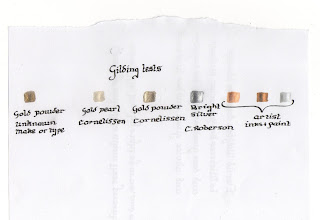 Gilding tests
Gold powder
unknown
make or type
Gold pearl
Cornelissen
Gold powder
Cornelissen
Bright
Silver
C. Roberson
artist
inks + paint